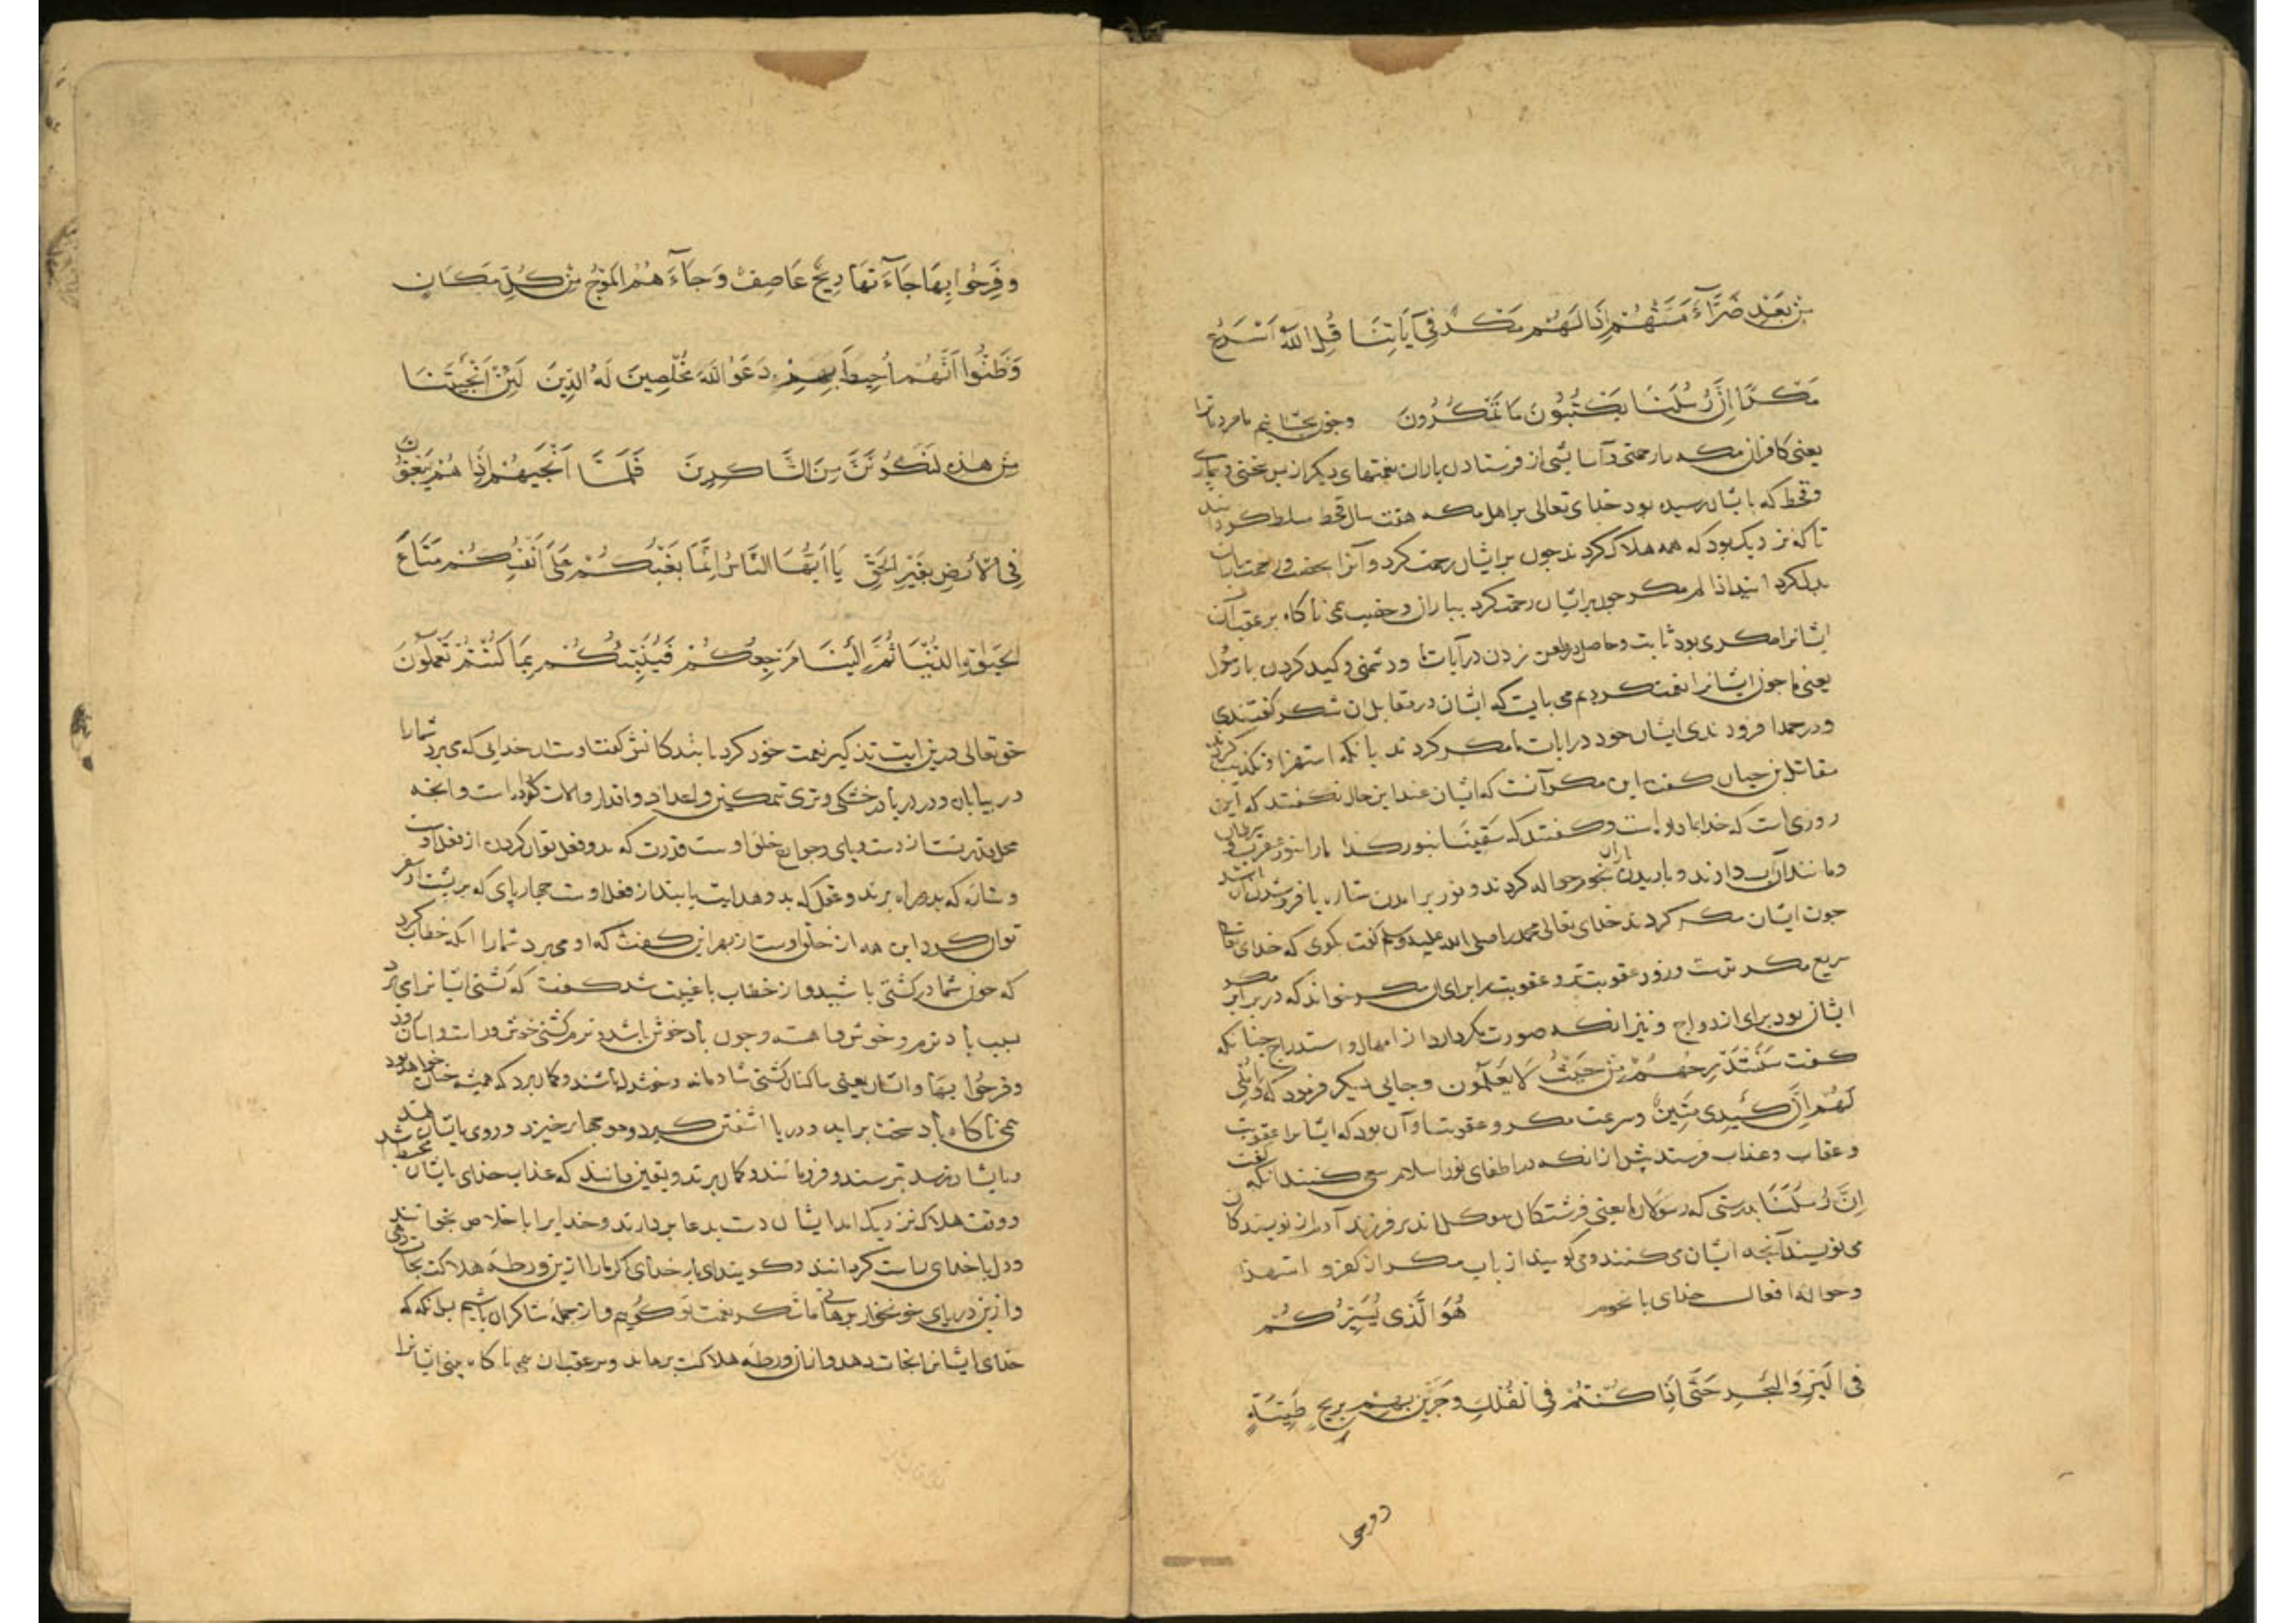 مِنْ بَعْدِ ضَرَّآءَ مَسَّتْهُمْ اِذَا لَهُمْ مَكْرٌ فِیٓ اٰیَاتِنَا قُلِ اللّٰهُ اَسْرَعُ
مَكْرًا اِنَّ رُسُلَنَا یَكْتُبُونَ مَا تَمْكُرُونَ وچون بچشانیم ما مردمانرا
یعنی کافران مکه را رحمتی و آسایشی از فرستادن باران و نعمتهای دیگر از پس سختی و بیماری
و قحط که بایشان رسیده بود خدای تعالی بر اهل مکه هفت سال قحط مسلط گردانید
تا که نزدیک بود که همه هلاک گردند چون برایشان رحمت کرد و آنرا بخصب و رحمت باران
بدل کرد اذا لهم مکر چون برایشان رحمت کرد بباران و خصب همی ناگاه بر عقب آن
ایشانرا مکری بود ثابت و حاصل و طعن زدن در آیات ما و دشمنی و کید کردن با رسول
یعنی ما چون ایشانرا نعمت کردیم می بایست که ایشان در مقابل آن شکر گفتندی
و در حمد افزودندی ایشان خود در ایات ما مکر کردند بانکه استهزا و تکذیب کردند
مقاتل بن حیان گفت این مکر آنست که ایشان عند این حال نگفتند که این
روزی است که خدا بما داد است و گفتند که سقینا بنوء کذا
و مانند آن و باریدن باران بنجوم حواله کردند و نوء برامدن ستاره یا فروشدن آن
چون ایشان مکر کردند خدای تعالی محمد را صلی الله علیه وسلم گفت بگوی که خدای تعالی
سریع مکر ترست و زود عقوبت تر و عقوبت را برای آن مکر خواند که در برابر مکر
ایشان بود برای ازدواج و نیز انکه صورت مکر دارد از امهال و استدراج چنانکه
گفت سَنَسْتَدْرِجُهُمْ مِنْ حَیْثُ لَا یَعْلَمُونَ و جایی دیگر فرمود که وَاُمْلِی
لَهُمْ اِنَّ كَیْدِی مَتِینٌ و سرعت مکر و عقوبت او آن بود که ایشانرا عقوبت
و عقاب و عذاب فرستد پیش از انکه در اطفای نور اسلام سعی کنند انکه گفت
اِنَّ رُسُلَنَا بدرستی که رسولان ما یعنی فرشتگان موکل اند بر فرزند آدم از نویسندگان
می نویسند آنچه ایشان می کنند و می گویند از باب مکر از کفر و استهزا
و حواله افعال خدای با نجوم هُوَ الَّذِی یُسَیِّرُكُمْ
فِی الْبَرِّ وَالْبَحْرِ حَتّٰی اِذَا كُنْتُمْ فِی الْفُلْكِ وَجَرَیْنَ بِهِمْ بِرِیحٍ طَیِّبَةٍ
وَفَرِحُوا بِهَا جَآءَتْهَا رِیحٌ عَاصِفٌ وَجَآءَهُمُ الْمَوْجُ مِنْ كُلِّ مَكَانٍ
وَظَنُّوا اَنَّهُمْ اُحِیطَ بِهِمْ دَعَوُا اللّٰهَ مُخْلِصِینَ لَهُ الدِّینَ لَئِنْ اَنْجَیْتَنَا
مِنْ هٰذِهِ لَنَكُونَنَّ مِنَ الشَّاكِرِینَ فَلَمَّا اَنْجَیهُمْ اِذَا هُمْ یَبْغُونَ
فِی الْاَرْضِ بِغَیْرِ الْحَقِّ یَا اَیُّهَا النَّاسُ اِنَّمَا بَغْیُكُمْ عَلٰی اَنْفُسِكُمْ مَتَاعَ
الْحَیٰوةِ الدُّنْیَا ثُمَّ اِلَیْنَا مَرْجِعُكُمْ فَنُنَبِّئُكُمْ بِمَا كُنْتُمْ تَعْمَلُونَ
حق تعالی درین ایت تذکیر نعمت خود کرد با بندکانش گفت اوست ان خدایی که می برد شمارا
در بیابان و در دریا در خشکی و تری بتمکین و اعداد و اقدار و الات و انچه
محل قدرتست از دست و پای و جوارح خلق اوست و قدرت که بدو فعل توان کردن از فعل اوست
و ستاره که بدو راه برند و عقل که بدو هدایت یابند از فعل اوست چهارپای که بر پشت او سفر
توان کرد این همه از خلق اوست از بهر این گفت که او می برد شمارا انکه خطاب کرد
که چون شما در کشتی باشید و از خطاب با غیبت شد گفت که کشتی ایشانرا می برد
بسبب باد نرم و خوش و اهسته و چون باد خوش باشد و نرم کشتی خوش رود است و اسان رود
وفرحوا بها و ایشان یعنی ساکنان کشتی شادمانه و خوشدل باشند و گمان برند که همیشه چنان خواهد بود
همی ناگاه باد سخت براید و دریا اشفتن گیرد و موجها برخیزد و روی بایشان نهند
و بایشان رسد بترسند و فرومانند و گمان برند و یقین دانند که عذاب خدای بایشان محیط شد
و وقت هلاک نزدیک امد ایشان دست بدعا بردارند و خدایرا باخلاص بخوانند
و دل با خدای راست گردانند و گویند ای بار خدای اگر مارا ازین ورطه هلاکت نجات دهی
و ازین دریای خونخوار برهانی ما شکر نعمت تو گوییم و از جمله شاکران باشیم پس انکه که
خدای ایشانرا نجات دهد و از ان ورطه هلاکت برهاند و بر عقب ان همی ناگاه بینی ایشانرا